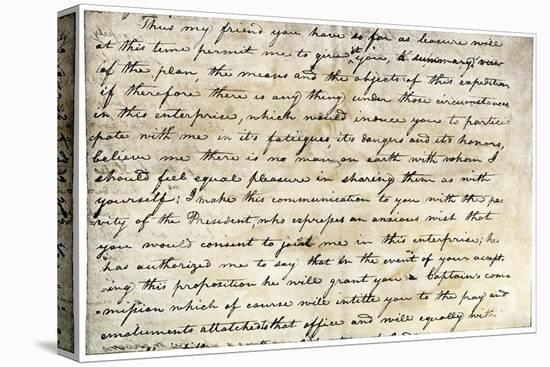 Thus my friend you have so far as leasure will
at this time permit me to give it you, a summary view
of the plan, the means and the objects of this expedition
if therefore there is any thing under those circumstances,
in this enterprise, which would induce you to partici-
pate with me in it's fatiegues, it's dangers and it's honors,
believe me there is no man on earth with whom I
should feel equal pleasure in sharing them as with
yourself; I make this communication to you with the pri-
vity of the President, who expresses an anxious wish that
you would consent to join me in this enterprise; he
has authorized me to say that in the event of your accept-
ing this proposition he will grant you a Captain's com-
-mission which of course will intitle you to the pay and
emoluments attatched to that office and will equally with